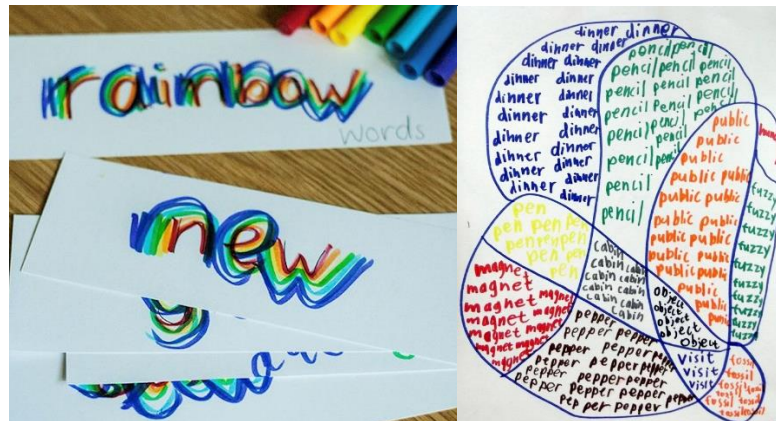 rainbow
words
new
dinner dinner
dinner dinner
dinner dinner
dinner dinner
dinner dinner
dinner dinner
dinner dinner
dinner dinner
dinner dinner
dinner dinner
dinner
pencil pencil
pencil pencil pencil
pencil pencil pencil
pencil pencil pencil
pencil pencil
pencil pencil
pencil
pencil
public
public
public
public public
public public
public public
public public
public public
public public
public
fuzzy
fuzzy
fuzzy
fuzzy
fuzzy
fuzzy
fuzzy
fuzzy
pen
pen pen pen
pen pen pen
pen pen
pen
cabin
cabin cabin
cabin cabin
cabin cabin
cabin
magnet
magnet
magnet magnet
magnet magnet
magnet magnet
magnet magnet
magnet
object
object
object
object
object
pepper pepper
pepper pepper pepper
pepper pepper pepper
pepper pepper pepper
pepper pepper pepper
pepper pepper
visit
visit
visit
fossil
fossil
fossil
fossil fossil
fossil